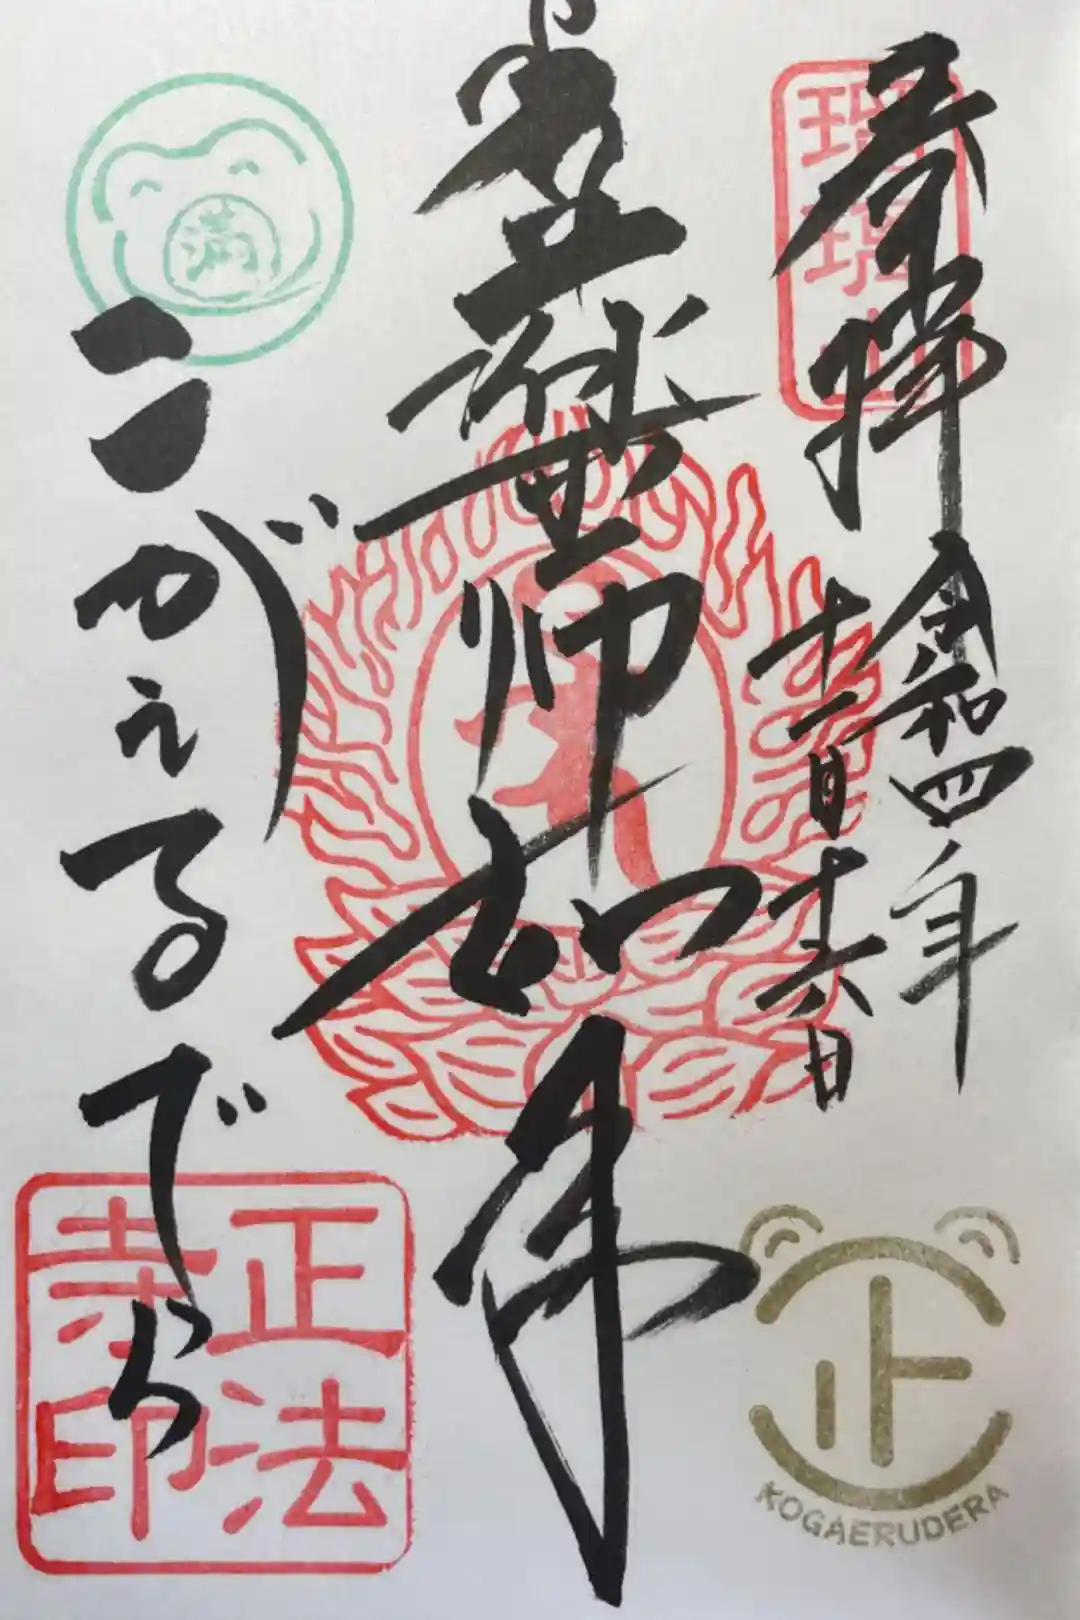 奉拝
令和四年
十一月十六日
瑠璃山
薬師如来
こがえるでら
正法
寺印
満
正
KOGAERUDERA